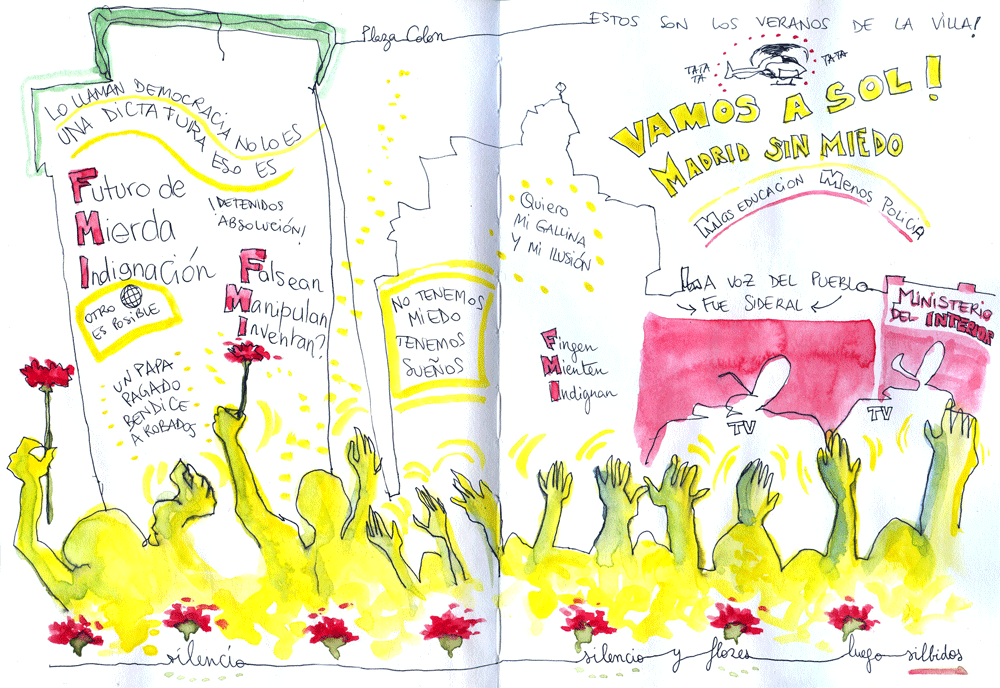 Plaza Colon
LO LLAMAN DEMOCRACIA NO LO ES
UNA DICTADURA ESO ES
FUTURO DE
MIERDA
INDIGNACIÓN
¡DETENIDOS
ABSOLUCIÓN!
FALSEAN
MANIPULAN
INVENTAN?
OTRO
ES POSIBLE
UN PAPA
PAGADO
BENDICE
A ROBADOS
NO TENEMOS
MIEDO
TENEMOS
SUEÑOS
ESTOS SON LOS VERANOS DE LA VILLA!
TA TA
TA
TA TA
VAMOS A SOL!
MADRID SIN MIEDO
MAS EDUCACION MENOS POLICIA
QUIERO
MI GALLINA
Y MI ILUSIÓN
LA VOZ DEL PUEBLO
FUE SIDERAL
MINISTERIO
DEL INTERIOR
FINGEN
MIENTEN
INDIGNAN
TV
TV
silencio
silencio y flores
luego silbidos